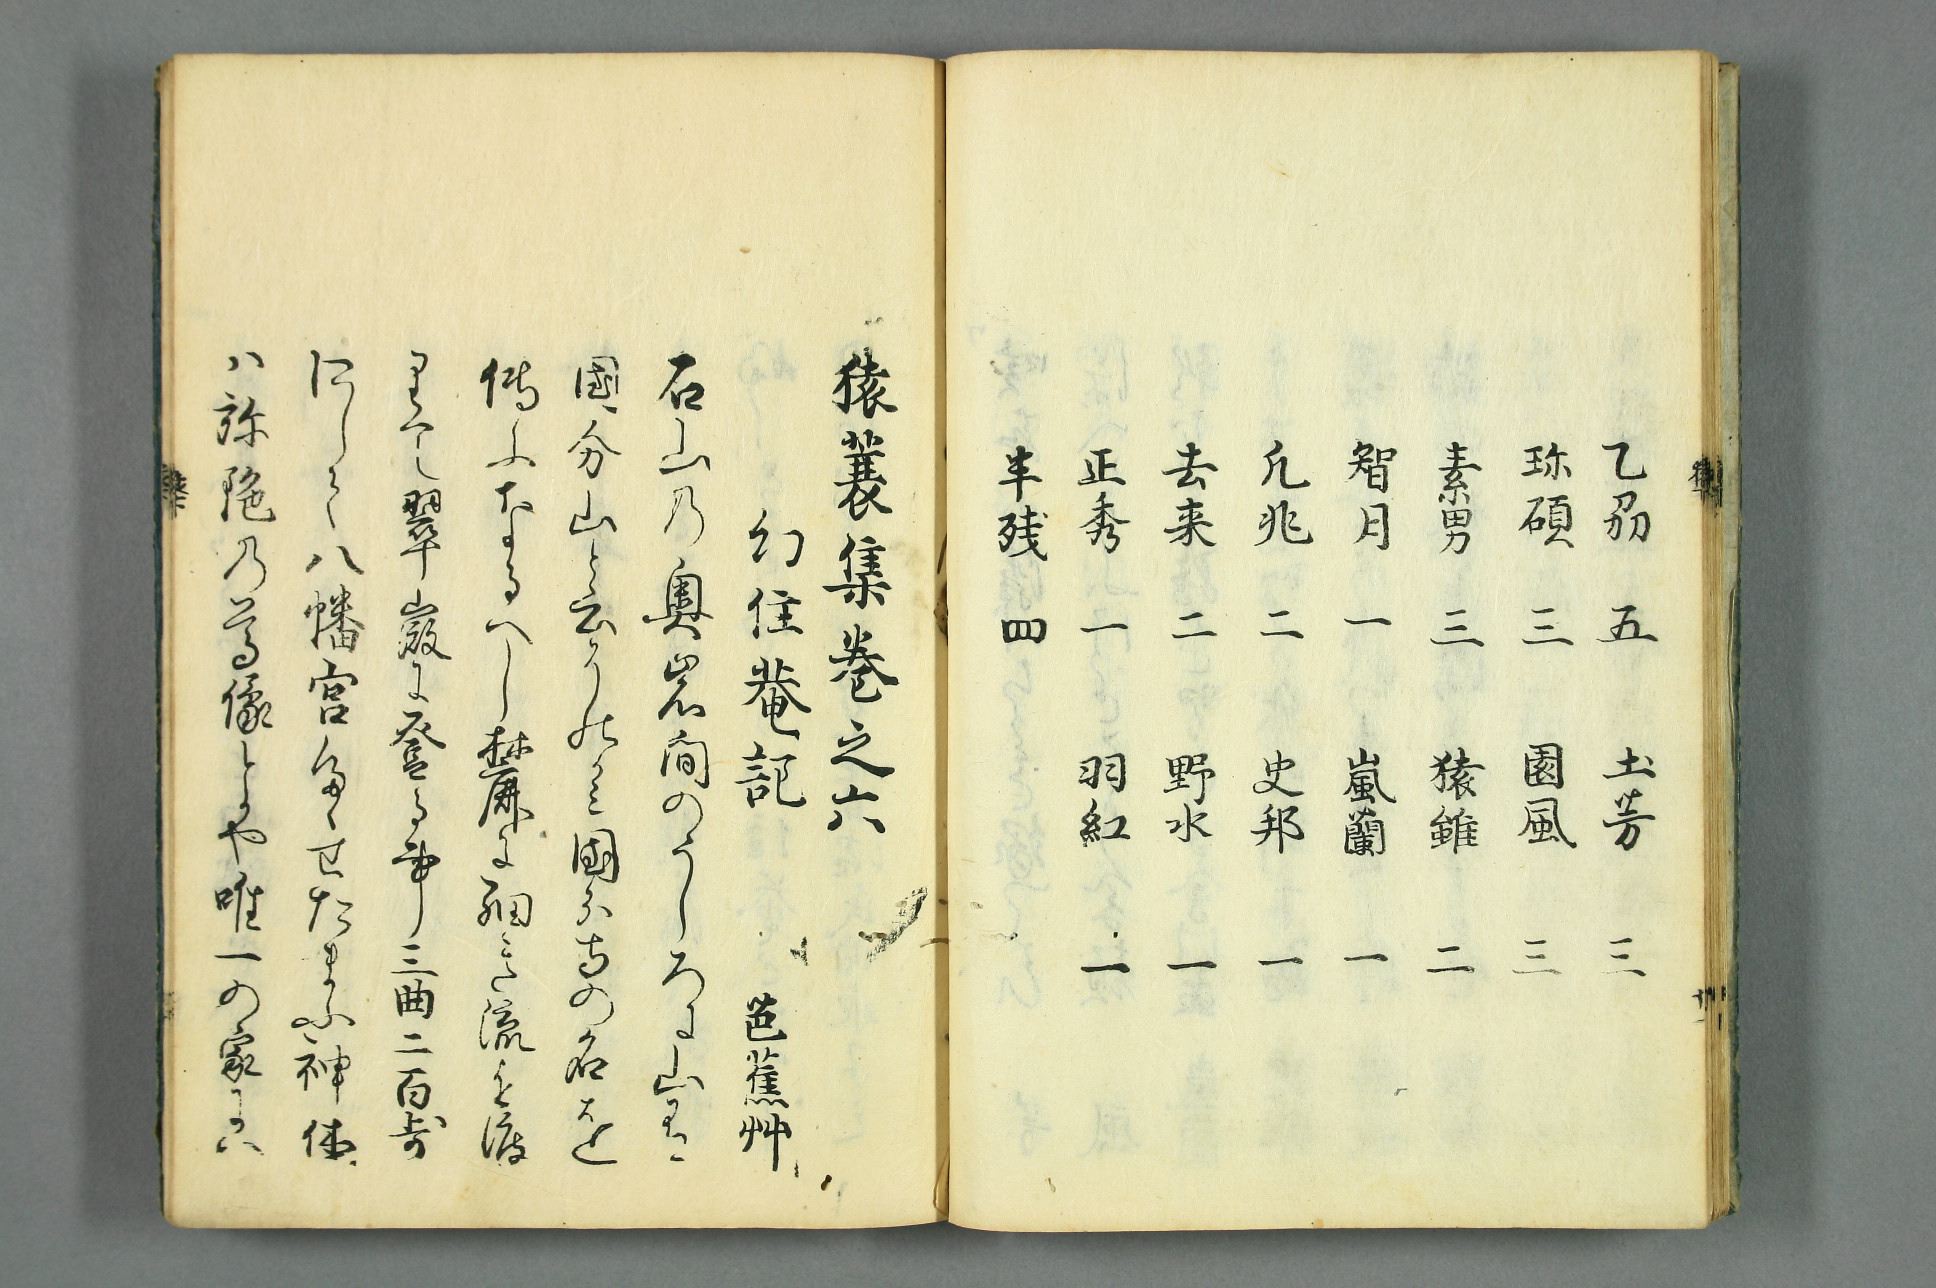 乙刕 五 土芳 三
珎碩 三 園風 三
素男 三 猿雖 二
智月 一 嵐蘭 一
凡兆 二 史邦 一
去来 二 野水 一
正秀 一 羽紅 一
半残 四
猿蓑集巻之六
幻住菴記 芭蕉艸
石山の奥岩間のうしろに山有
國分山と云そのかみ國分寺の名を
傳ふなるへし麓に細き流を渡
りて翠嶶に登る事三曲二百歩
にして八幡宮たゝせたまふ神体
ハ弥陀の尊像とかや唯一の家にハ